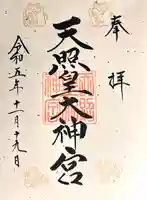 奉拝
天照皇大神宮
令和五年十一月十九日